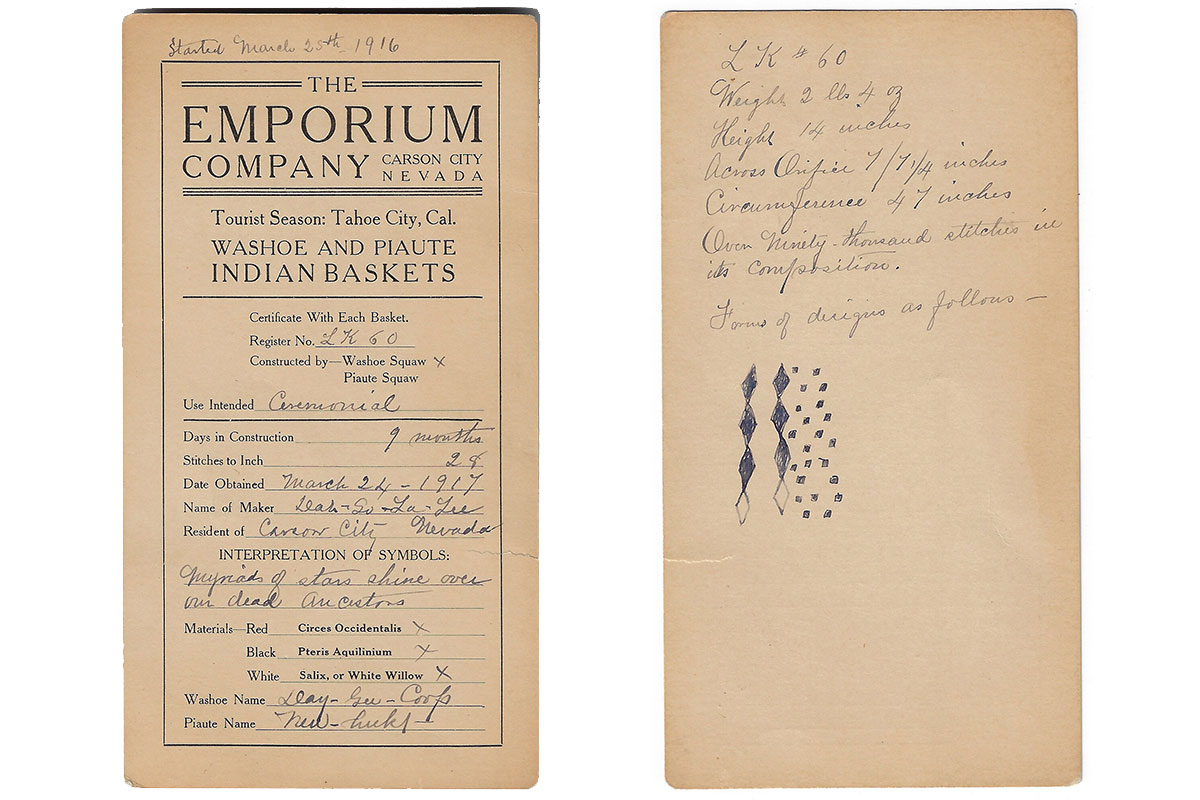 Started March 25th 1916
THE
EMPORIUM
COMPANY CARSON CITY
NEVADA
Tourist Season: Tahoe City, Cal.
WASHOE AND PIAUTE
INDIAN BASKETS
Certificate With Each Basket.
Register No. L K 60
Constructed by—Washoe Squaw X
Piaute Squaw
Use Intended Ceremonial
Days in Construction 9 months
Stitches to Inch 28
Date Obtained March 24 - 1917
Name of Maker Dah-So-La-Lee
Resident of Carson City Nevada
INTERPRETATION OF SYMBOLS:
Myriads of stars shine over
our dead Ancestors
Materials—Red Circes Occidentalis X
Black Pteris Aquilinium X
White Salix, or White Willow X
Washoe Name Day-
Piaute Name
L K # 60
Weight 2 lbs 4 oz
Height 14 inches
Across Orifice 7/7 1/4 inches
Circumference 47 inches
Over Ninety-thousand stitches in
its composition.
Forms of designs as follows —